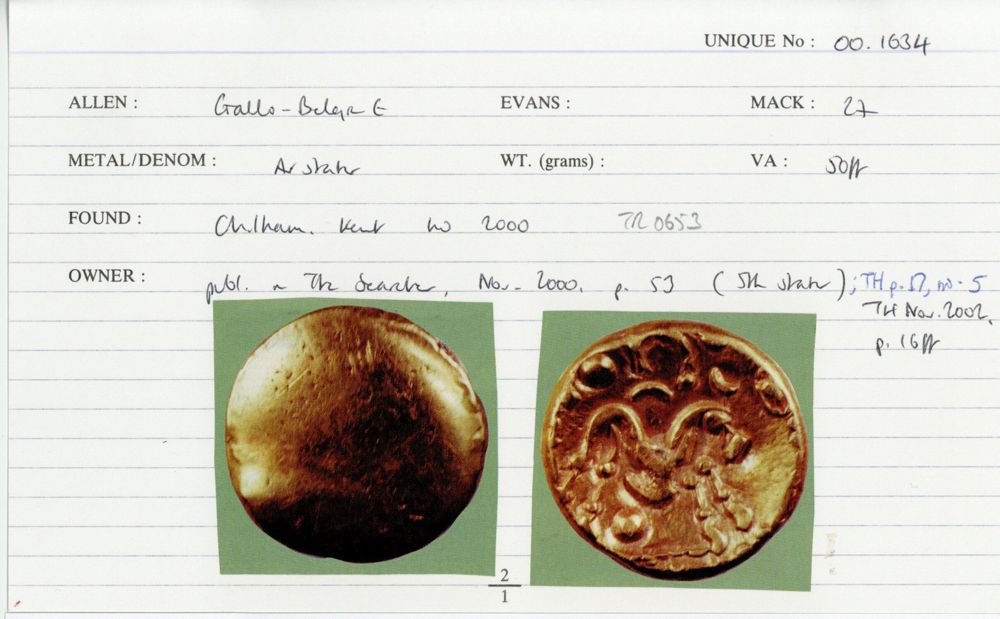 UNIQUE No : 00.1634
ALLEN : Gallo-Belgic E EVANS : MACK : 27
METAL/DENOM : AV stater WT. (grams) : VA : 50ff
FOUND : Chilham. Kent 2000 TR 0653
OWNER : publ. in The Searcher, Nov. 2000, p. 53 (5th stater); TH p. 57, no. 5
TH Nov. 2002,
p. 16ff
2
1